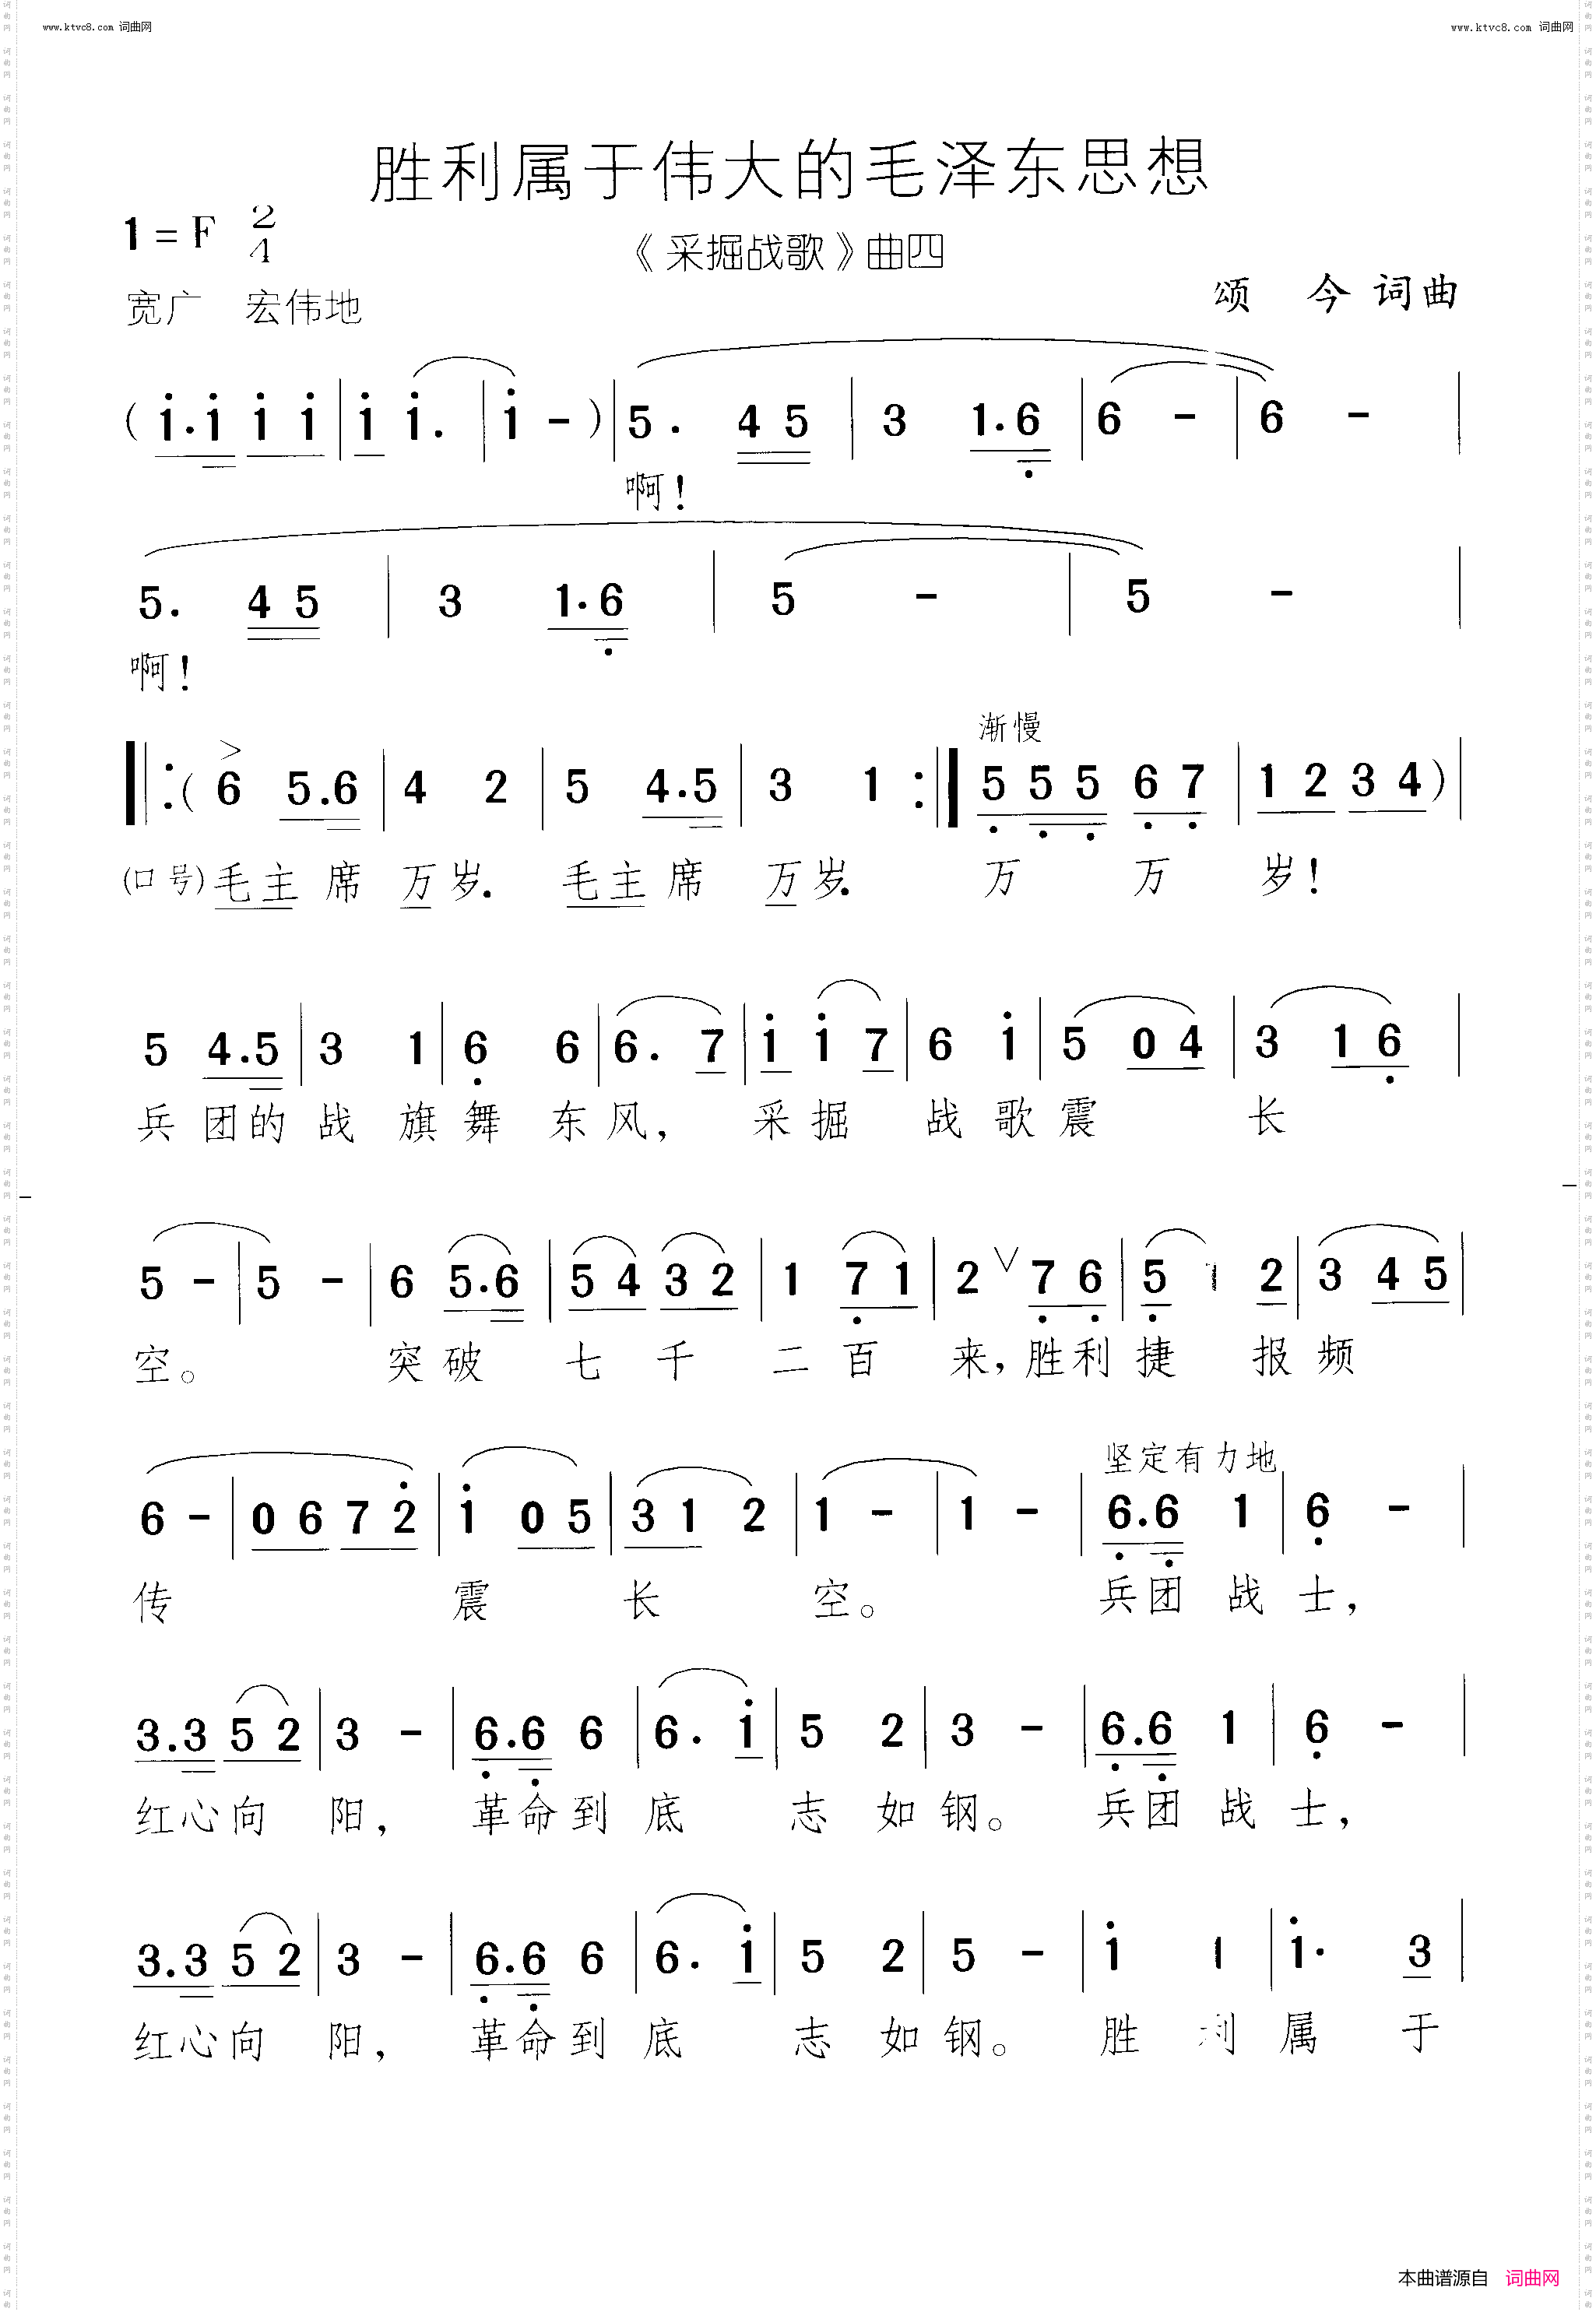 www.ktvc8.com 词曲网 www.ktvc8.com 词曲网
胜利属于伟大的毛泽东思想
1=F 2/4
《采掘战歌》曲四
宽广 宏伟地 颂 今 词曲
( i. i i i | i i. | i - ) | 5. 4 5 | 3 1. 6 | 6 - | 6 - |
啊!
5. 4 5 | 3 1. 6 | 5 - | 5 - |
啊!
渐慢
‖: ( 6 5. 6 | 4 2 | 5 4. 5 | 3 1 :‖ 5 5 5 6 7 | 1 2 3 4 ) |
(口号) 毛主席 万岁. 毛主席 万岁. 万 万 岁!
5 4. 5 | 3 1 | 6 6 | 6. 7 | i i 7 | 6 i | 5 0 4 | 3 1 6 |
兵 团的 战 旗 舞 东 风, 采 掘 战 歌 震 长
5 - | 5 - | 6 5. 6 | 5 4 3 2 | 1 7 1 | 2 ∨ 7 6 | 5 1 2 | 3 4 5 |
空。 突 破 七 千 二 百 来, 胜利 捷 报 频
坚定有力地
6 - | 0 6 7 2 | i 0 5 | 3 1 2 | 1 - | 1 - | 6. 6 1 | 6 - |
传 震 长 空。 兵团 战 士,
3. 3 5 2 | 3 - | 6. 6 6 | 6. i | 5 2 | 3 - | 6. 6 1 | 6 - |
红心向 阳, 革命到 底 志 如 钢。 兵团 战 士,
3. 3 5 2 | 3 - | 6. 6 6 | 6. i | 5 2 | 5 - | i 1 | i. 3 |
红心向 阳, 革命到 底 志 如 钢。 胜 利 属 于
本曲谱源自 词曲网